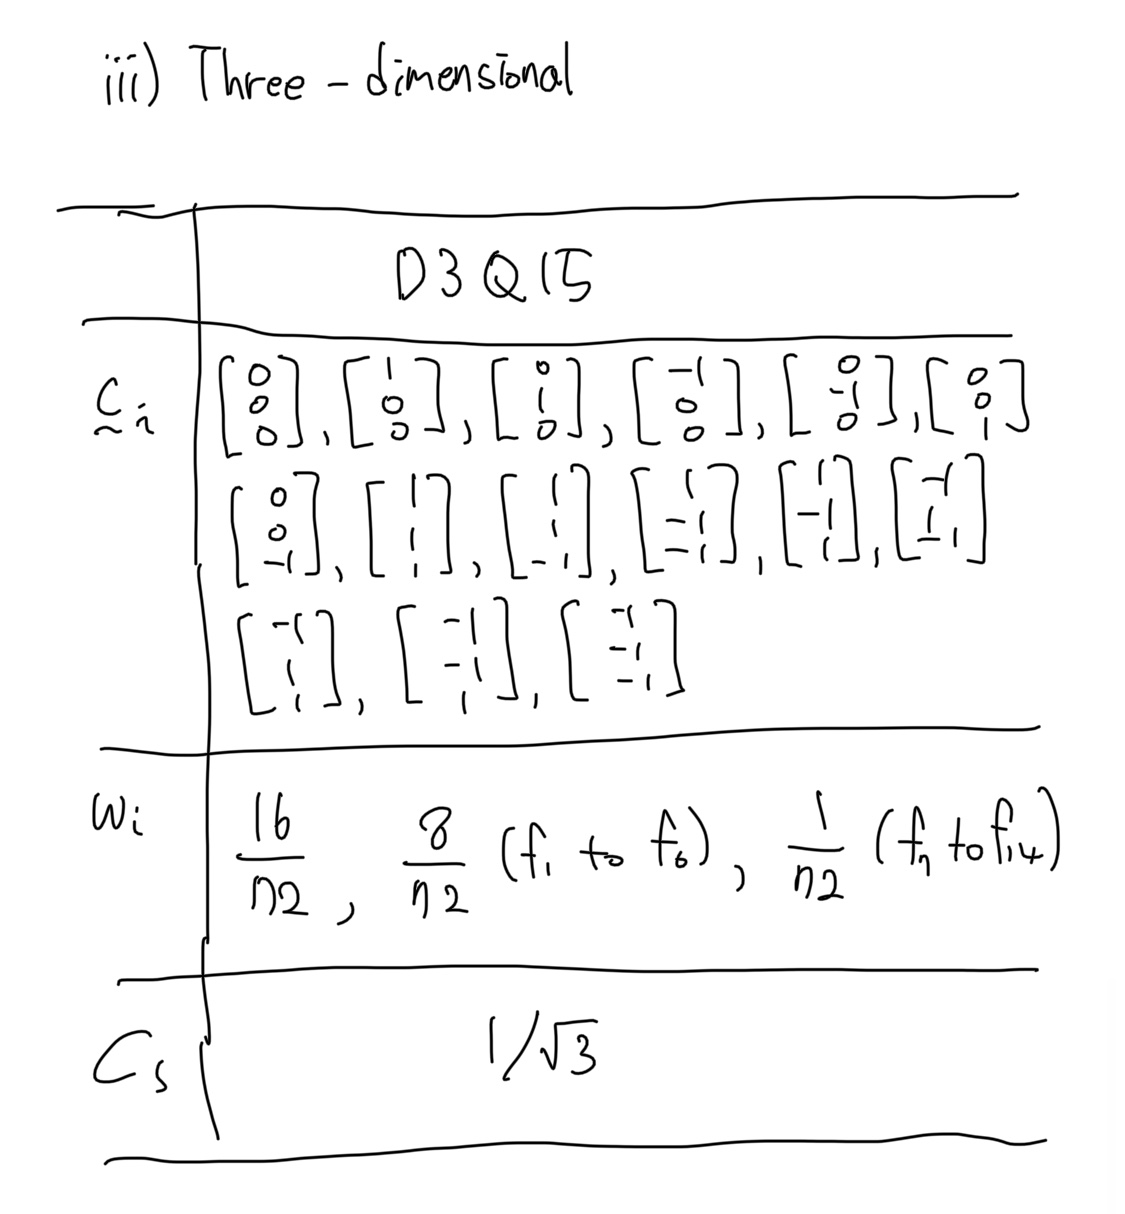 iii) Three-dimensional
D3Q15
c_i [0 0 0], [1 0 0], [0 1 0], [-1 0 0], [0 -1 0], [0 0 1]
[0 0 -1], [1 1 1], [1 1 -1], [1 -1 -1], [1 -1 1], [-1 1 -1]
[-1 1 1], [-1 -1 1], [-1 -1 -1]
w_i 16/72, 8/72 (f_1 to f_6), 1/72 (f_7 to f_14)
C_s 1/√3